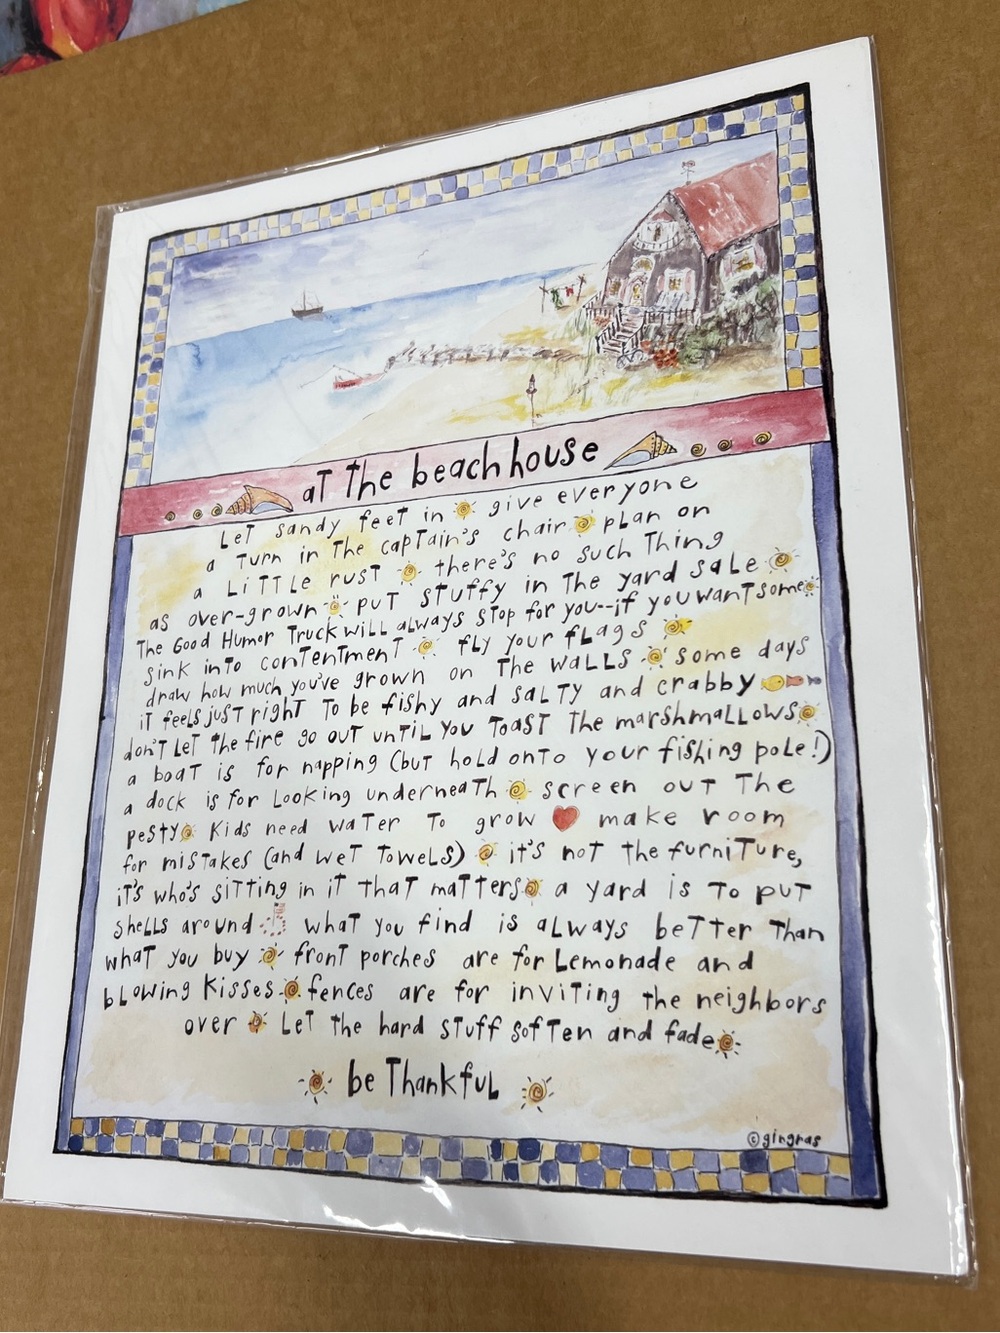 at the beach house
Let sandy feet in give everyone
a turn in the captain's chair plan on
a little rust there's no such thing
as over-grown put stuffy in the yard sale
The Good Humor Truck will always stop for you--if you want some
sink into contentment fly your flags
draw how much you've grown on the walls some days
it feels just right to be fishy and salty and crabby
don't let the fire go out until you toast the marshmallows
a boat is for napping (but hold onto your fishing pole!)
a dock is for looking underneath screen out the
pesty kids need water to grow make room
for mistakes (and wet towels) it's not the furniture,
it's who's sitting in it that matters a yard is to put
shells around what you find is always better than
what you buy front porches are for lemonade and
blowing kisses fences are for inviting the neighbors
over let the hard stuff soften and fade
be thankful
©gingras